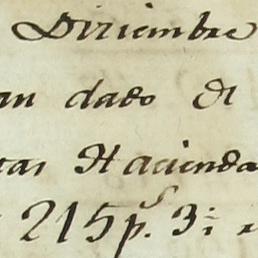 Diziembre
an dado Dn
tas Haciendas
215ps. 3